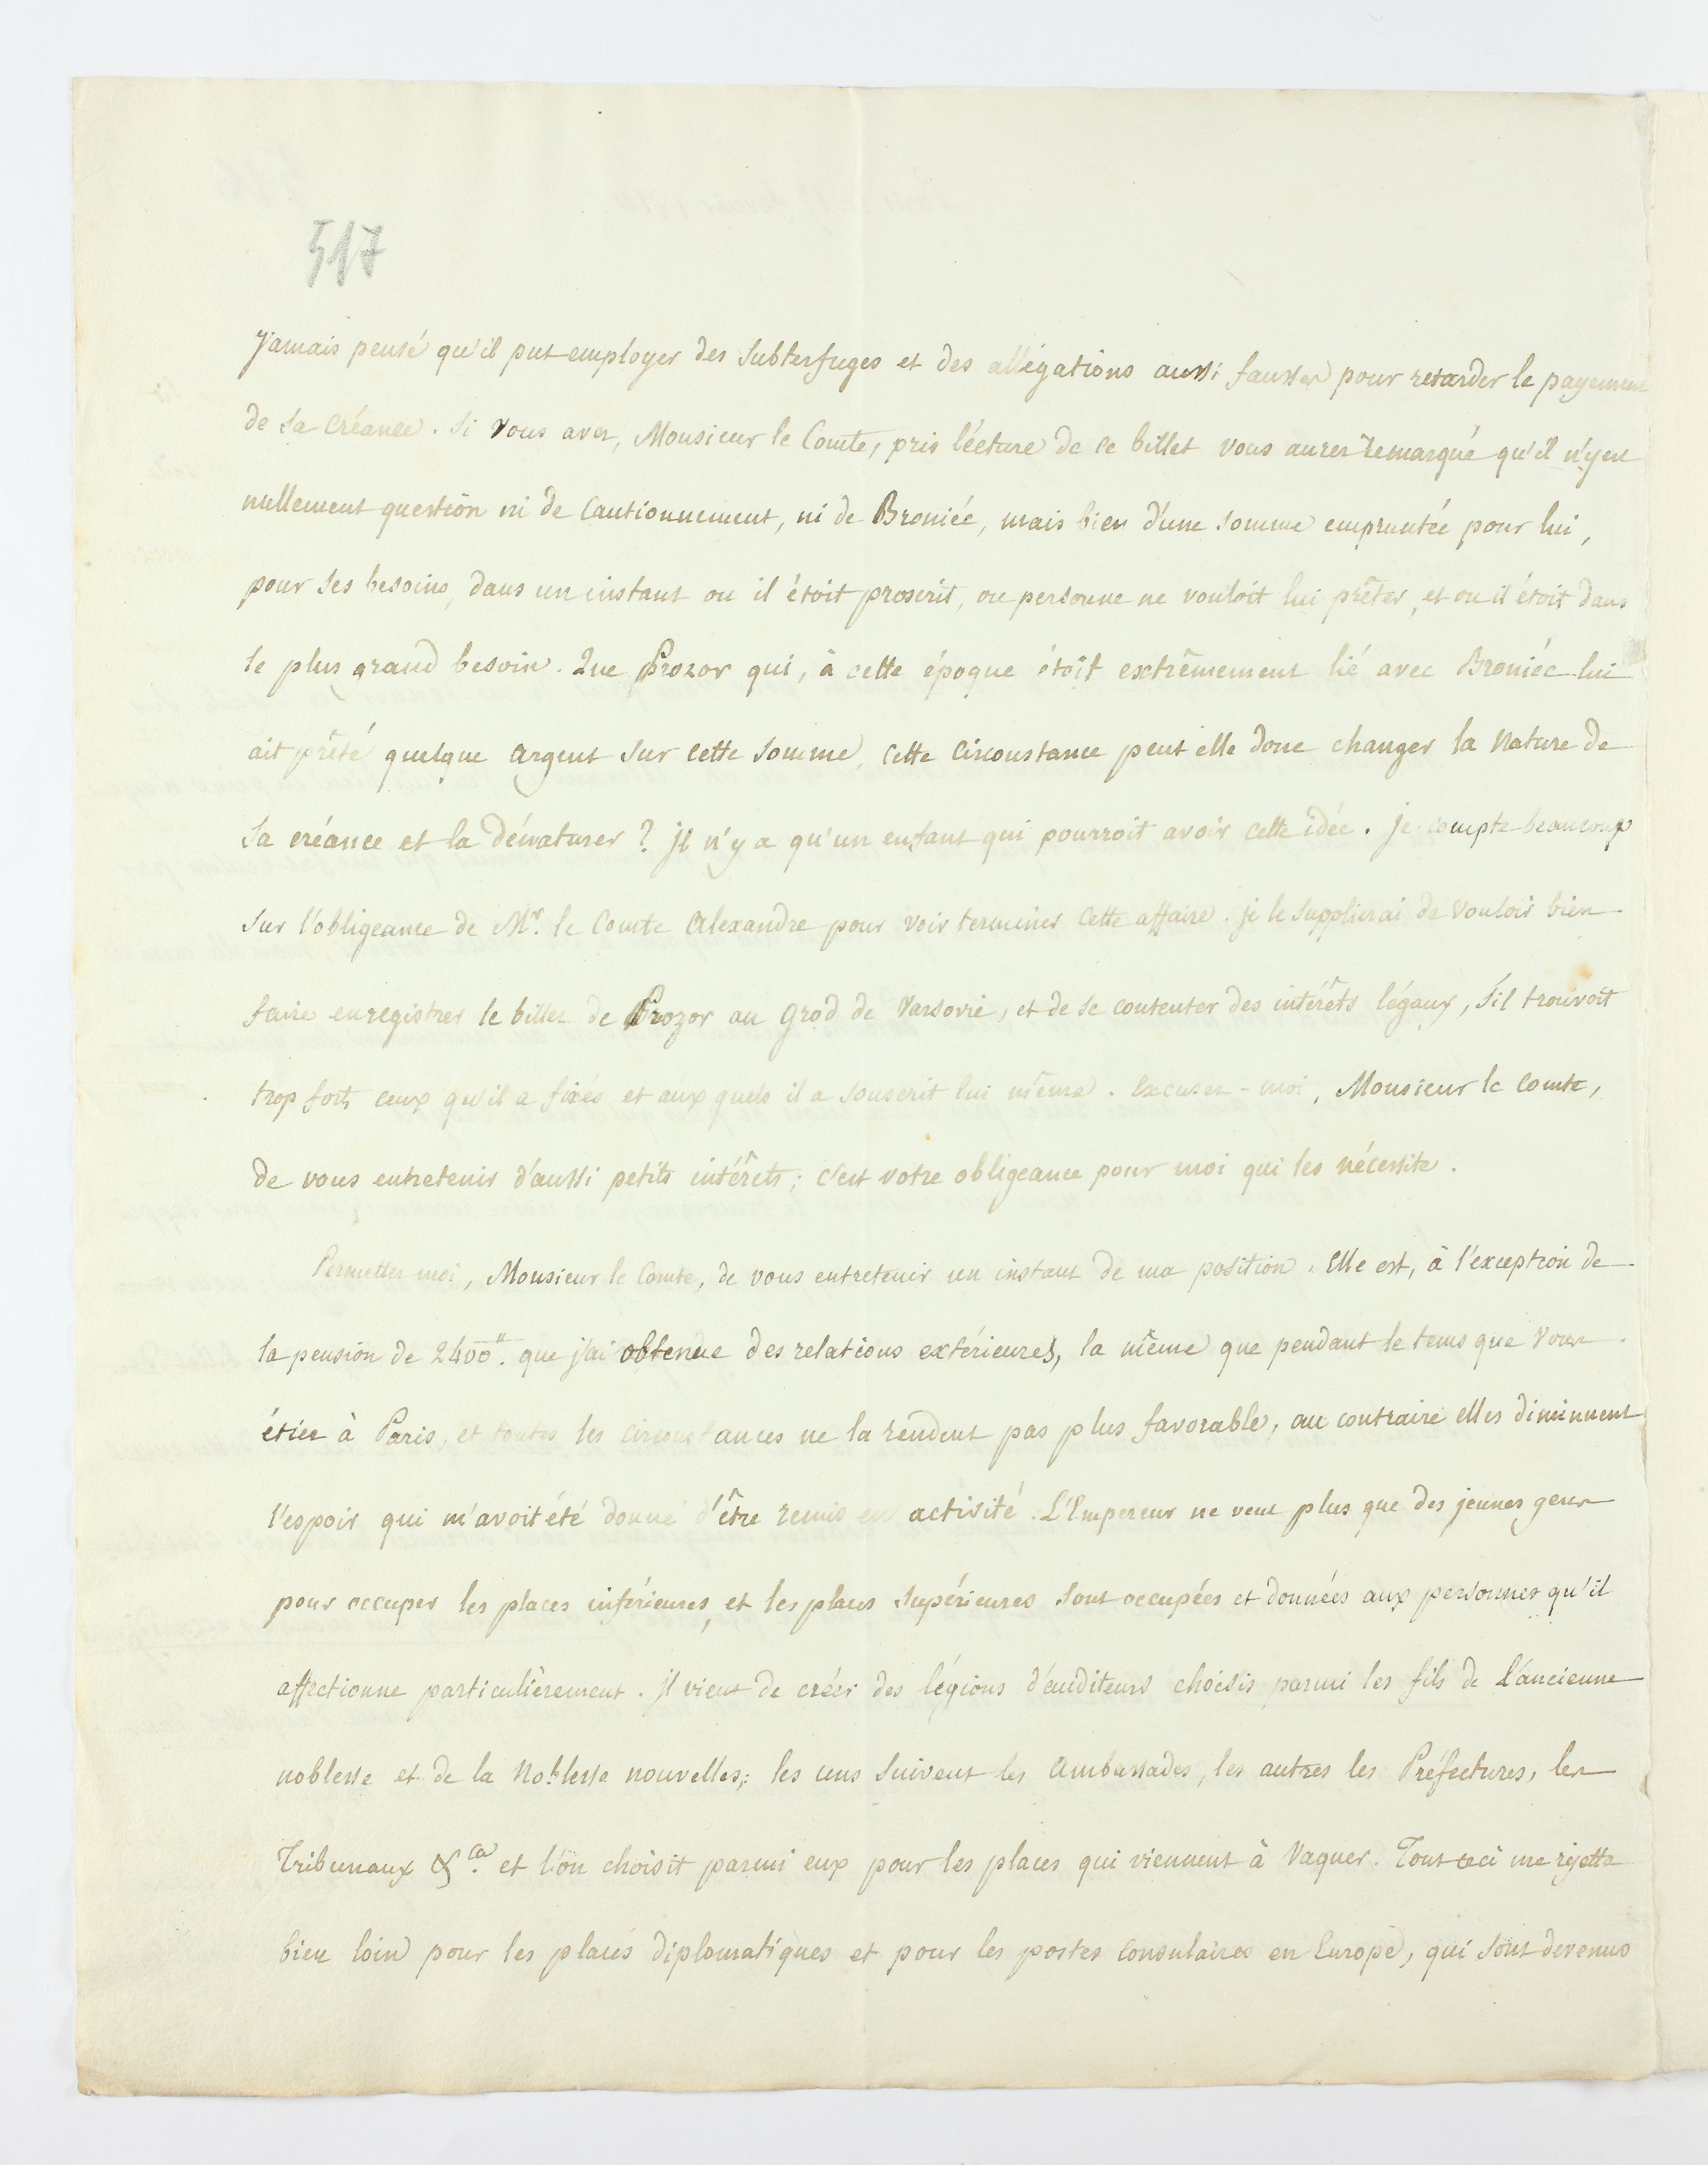 517
Jamais pensé qu'il put employer des subterfuges et des allégations aussi fausses pour retarder le payement
de sa créance. Si vous avez, Monsieur le Comte, pris lécture de ce billet vous aurez remarqué qu'il n'y est
nullement question ni de Cautionnement, ni de Broniéc, mais bien d'une somme empruntée pour lui,
pour ses besoins, dans un instant ou il étoit proscrit, ou personne ne vouloit lui prêter, et ou il étoit dans
le plus grand besoin. Que Prozor qui, à cette époque étoit extrêmement lié avec Broniéc lui
ait prêté quelque argent sur cette somme, cette circonstance peut elle donc changer la Nature de
sa créance et la dénaturer ? Il n'y a qu'un enfant qui pourroit avoir cette idée. Je compte beaucoup
sur l'obligeance de Mr. le Comte Alexandre pour voir terminer cette affaire. je le supplierai de vouloir bien
faire enregistrer le billet de Prozor au Grod de Varsovie, et de se contenter des intérêts légaux, s'il trouvoit
trop forts ceux qu'il a fixés et aux quels il a souscrit lui même. Excusez-moi, Monsieur le Comte,
de vous entretenir d'aussi petits intérêts; c'est votre obligeance pour moi qui les nécessite.
Permettez-moi, Monsieur le Comte, de vous entretenir un instant de ma position. Elle est, à l'exception de
la pension de 2400.# que j'ai obtenue des relations extérieures, la même que pendant le tems que Vous
étiez à Paris, et toutes les circonstances ne la rendent pas plus favorable, au contraire elles diminuent
l'espoir qui m'avoit été donné d'être remis en activité. L'Empereur ne veut plus que des jeunes gens
pour occuper les places inférieures, et les places supérieures sont occupées et données aux personnes qu'il
affectionne particulièrement. Il vient de créer des légions d'auditeurs choisis parmi les fils de l'ancienne
noblesse et de la Noblesse nouvelles; les uns suivent les Ambassades, les autres les Préfectures, les
Tribunaux &ca. et l'on choisit parmi eux pour les places qui viennent à Vaquer. Tout ceci me rejette
bien loin pour les places diplomatiques et pour les postes Consulaires en Europe, qui sont devenus